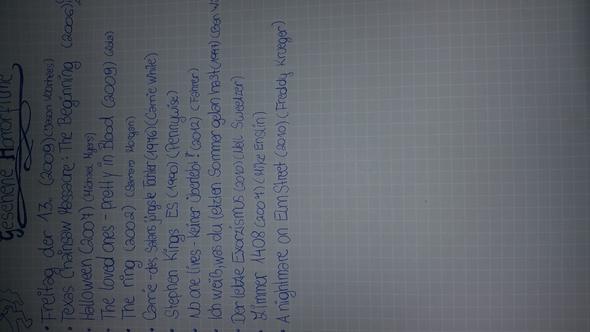 Gesehene Horrorfilme
• Freitag der 13. (2009) (Jason Voorhees)
• Texas Chainsaw Massacre: The Beginning (2006)
• Halloween (2007) (Michael Myers)
• The loved ones - pretty in Blood (2009) (Lola)
• The ring (2002) (Samara Morgan)
• Carrie - des Satans jüngste Tochter (1976) (Carrie White)
• Stephen Kings ES (1990) (Pennywise)
• No one lives - keiner überlebt! (2012) (Fahrer)
• Ich weiß, was du letzten Sommer getan hast (1997) (Ben
• Der letzte Exorzismus (2010) (Nell Sweetzer)
• Zimmer 1408 (2007) (Mike Enslin)
• A nightmare on Elm Street (2010) (Freddy Krueger)